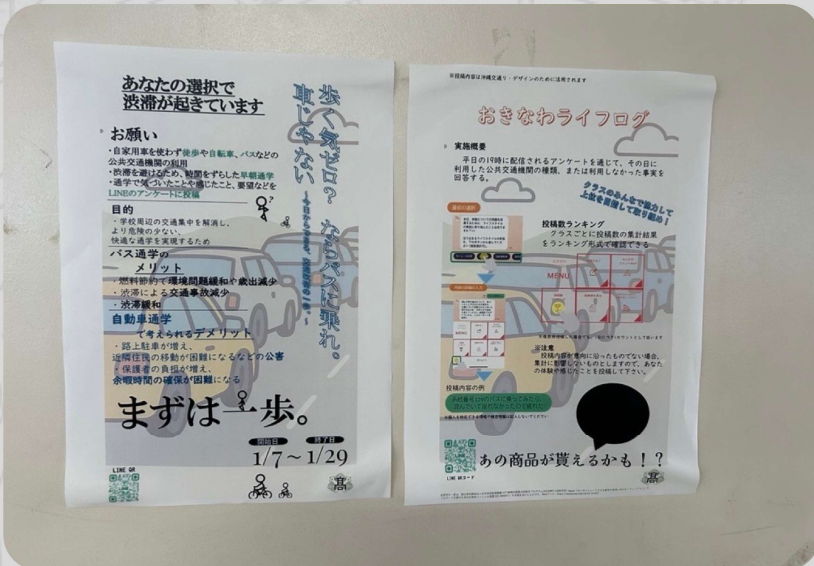 あなたの選択で
渋滞が起きています
歩く気ゼロ？ ならバスに乗れ。
車じゃない
お願い
・自家用車を使わず徒歩や自転車、バスなどの
公共交通機関の利用
・渋滞を避けるため、時間をずらした早朝通学
・通学で気づいたことや感じたこと、要望などを
LINEのアンケートに投稿
目的
・学校周辺の交通集中を解消し、
より危険の少ない、
快適な通学を実現するため
バス通学の
メリット
・燃料節約で環境問題緩和や歳出減少
・渋滞による交通事故減少
・渋滞緩和
自動車通学
で考えられるデメリット
・路上駐車が増え、
近隣住民の移動が困難になるなどの公害
・保護者の負担が増え、
余暇時間の確保が困難になる
まずは一歩。
開始日 終了日
1/7～1/29
LINE QR
高
※投稿内容は沖縄交通リ・デザインのために活用されます
おきなわライフログ
実施概要
平日の19時に配信されるアンケートを通じて、その日に
利用した公共交通機関の種類、または利用しなかった事実を
回答する。
クラスのみんなで協力して
上位を目指して取り組もう！
投稿数ランキング
クラスごとに投稿数の集計結果
をランキング形式で確認できる
MENU
MENU
※注意
投稿内容が意向に沿ったものでない場合、
集計に影響しないものとしますので、あなた
の体験や感じたことを投稿して下さい。
投稿内容の例
あの商品が貰えるかも！？
LINE QRコード
高